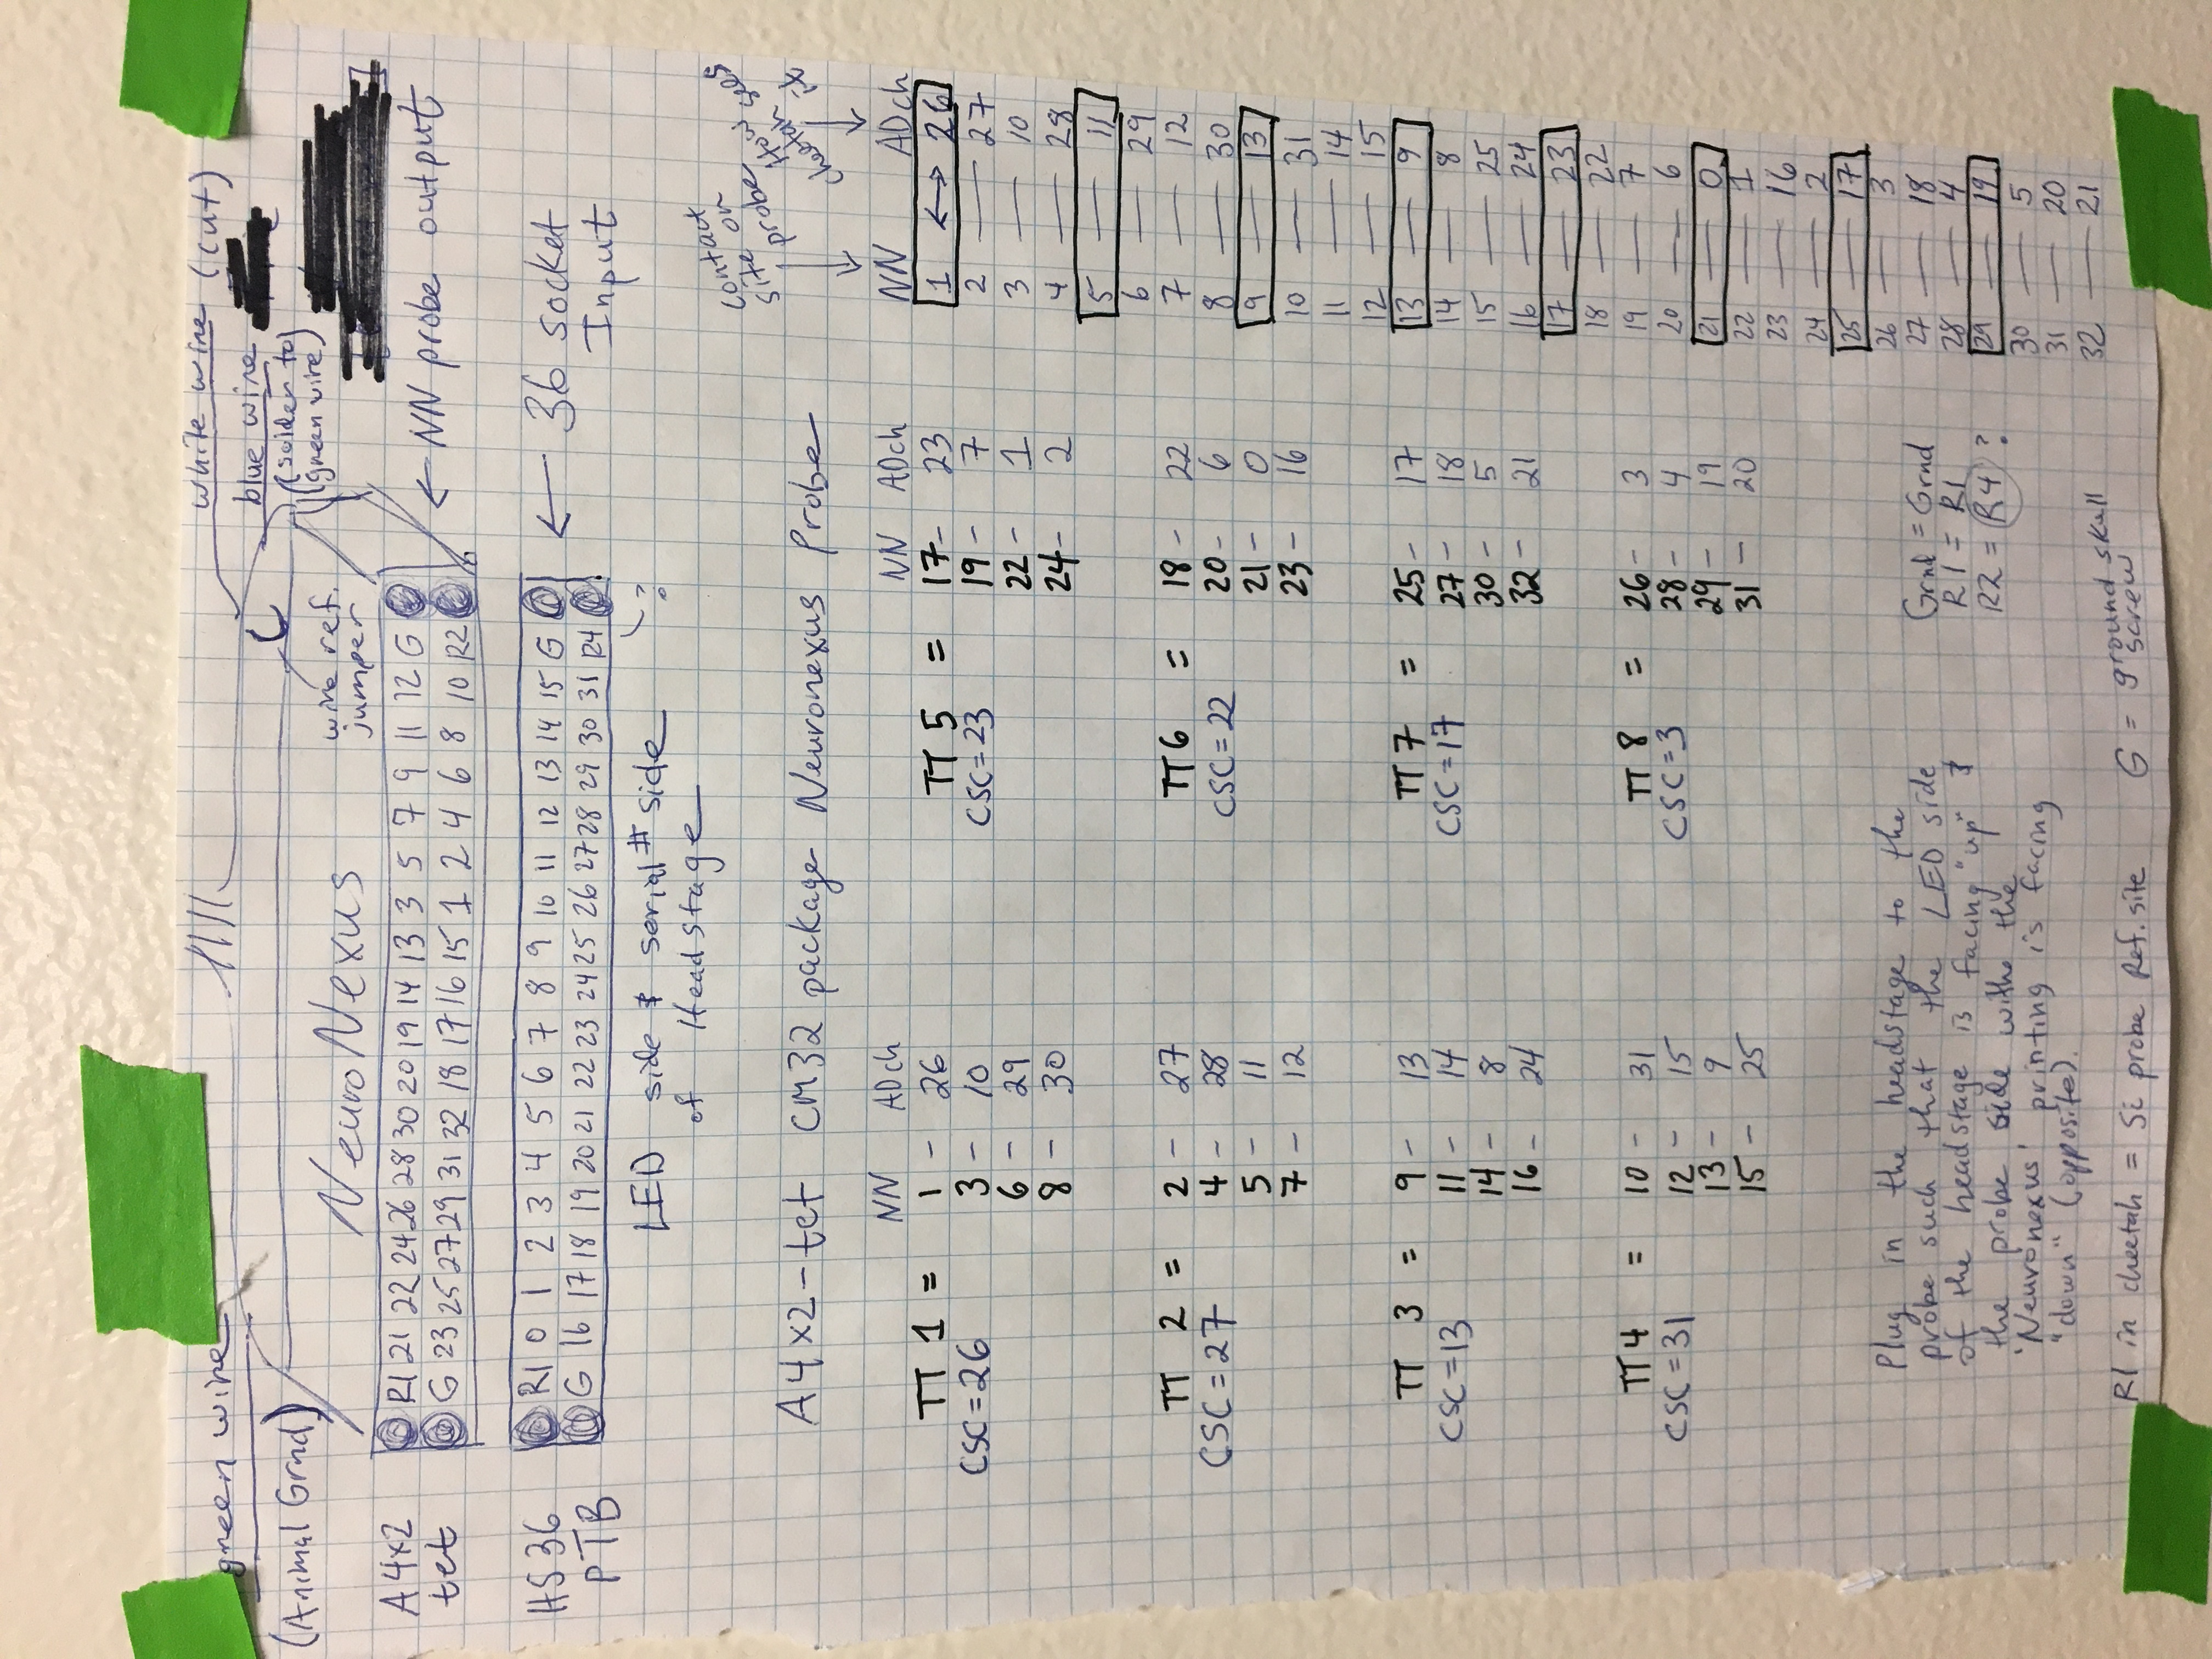 green wire
(Animal Grnd)
white wire (cut)
blue wire
(solder to)
(green wire)
wire ref.
jumper
NeuroNexus
A4x2
tet
R1 21 22 24 26 28 30 20 19 14 13 3 5 7 9 11 12 G
G 23 25 27 29 31 32 18 17 16 15 1 2 4 6 8 10 R2
← NN probe output
HS36
PTB
R1 0 1 2 3 4 5 6 7 8 9 10 11 12 13 14 15 G
G 16 17 18 19 20 21 22 23 24 25 26 27 28 29 30 31 R4
← 36 socket
Input
?
LED side & serial # side
of Headstage
contact
site on
probe
How
cheetah sees
it
A4x2-tet CM32 package Neuronexus Probe
NN ADch
TT 1 = 1 - 26
CSC=26 3 - 10
6 - 29
8 - 30
TT 2 = 2 - 27
CSC=27 4 - 28
5 - 11
7 - 12
TT 3 = 9 - 13
CSC=13 11 - 14
14 - 8
16 - 24
TT 4 = 10 - 31
CSC=31 12 - 15
13 - 9
15 - 25
NN ADch
TT 5 = 17 - 23
CSC=23 19 - 7
22 - 1
24 - 2
TT 6 = 18 - 22
CSC=22 20 - 6
21 - 0
23 - 16
TT 7 = 25 - 17
CSC=17 27 - 18
30 - 5
32 - 21
TT 8 = 26 - 3
CSC=3 28 - 4
29 - 19
31 - 20
NN ADch
1 ↔ 26
2 — 27
3 — 10
4 — 28
5 — 11
6 — 29
7 — 12
8 — 30
9 — 13
10 — 31
11 — 14
12 — 15
13 — 9
14 — 8
15 — 25
16 — 24
17 — 23
18 — 22
19 — 7
20 — 6
21 — 0
22 — 1
23 — 16
24 — 2
25 — 17
26 — 3
27 — 18
28 — 4
29 — 19
30 — 5
31 — 20
32 — 21
Plug in the headstage to the
probe such that the LED side
of the headstage is facing "up" &
the probe side withe the
'Neuronexus' printing is facing
"down" (opposite).
Grnd = Grnd
R1 = R1
R2 = R4 ?
R1 in cheetah = Si probe Ref. site
G = ground skull
screw